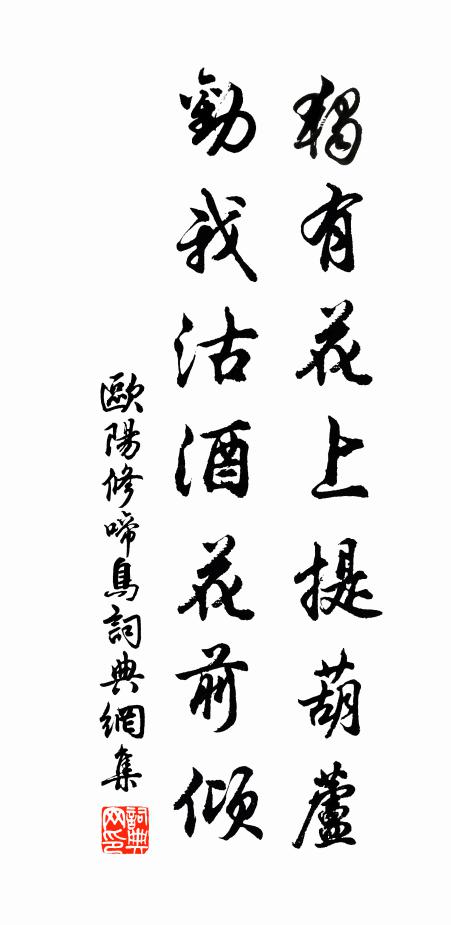 獨有花上提葫蘆
勸我沽酒花前傾
歐陽修啼鳥詞典網集
詞典网印